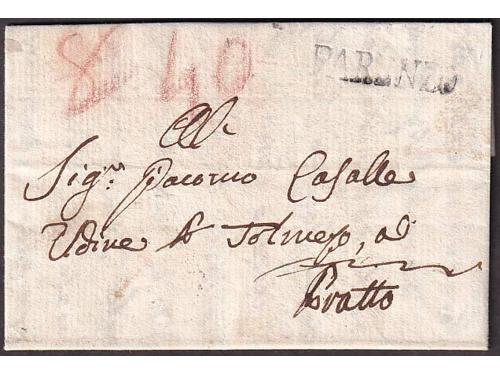 8 40
PARENZO
All
Sig.r Giacomo Casalle
Udine
Tolmezo, ad
Pratto